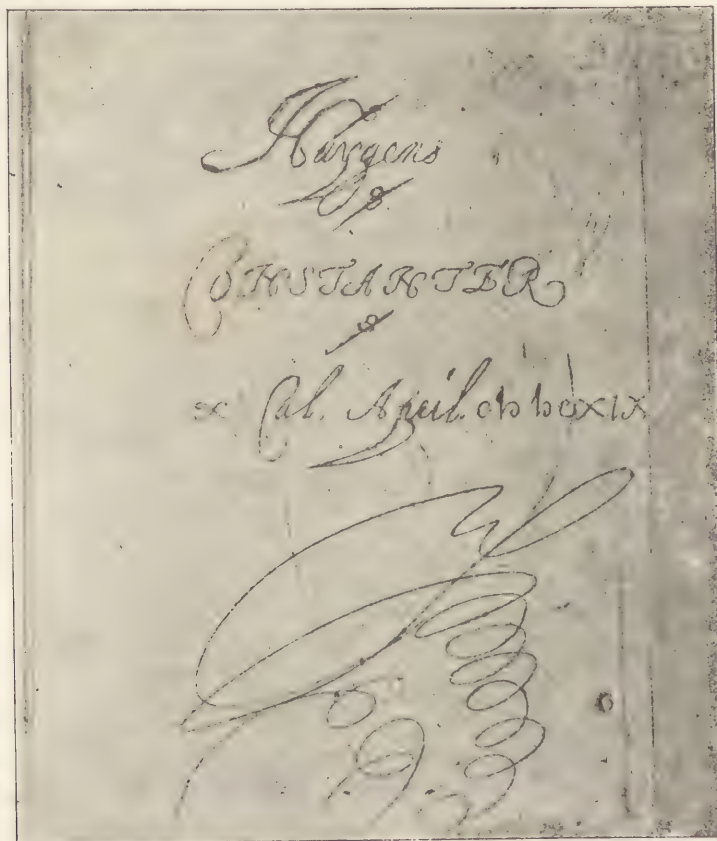 Huygens
CONSTANTER
x Cal. April. cIɔ Iɔc xIx